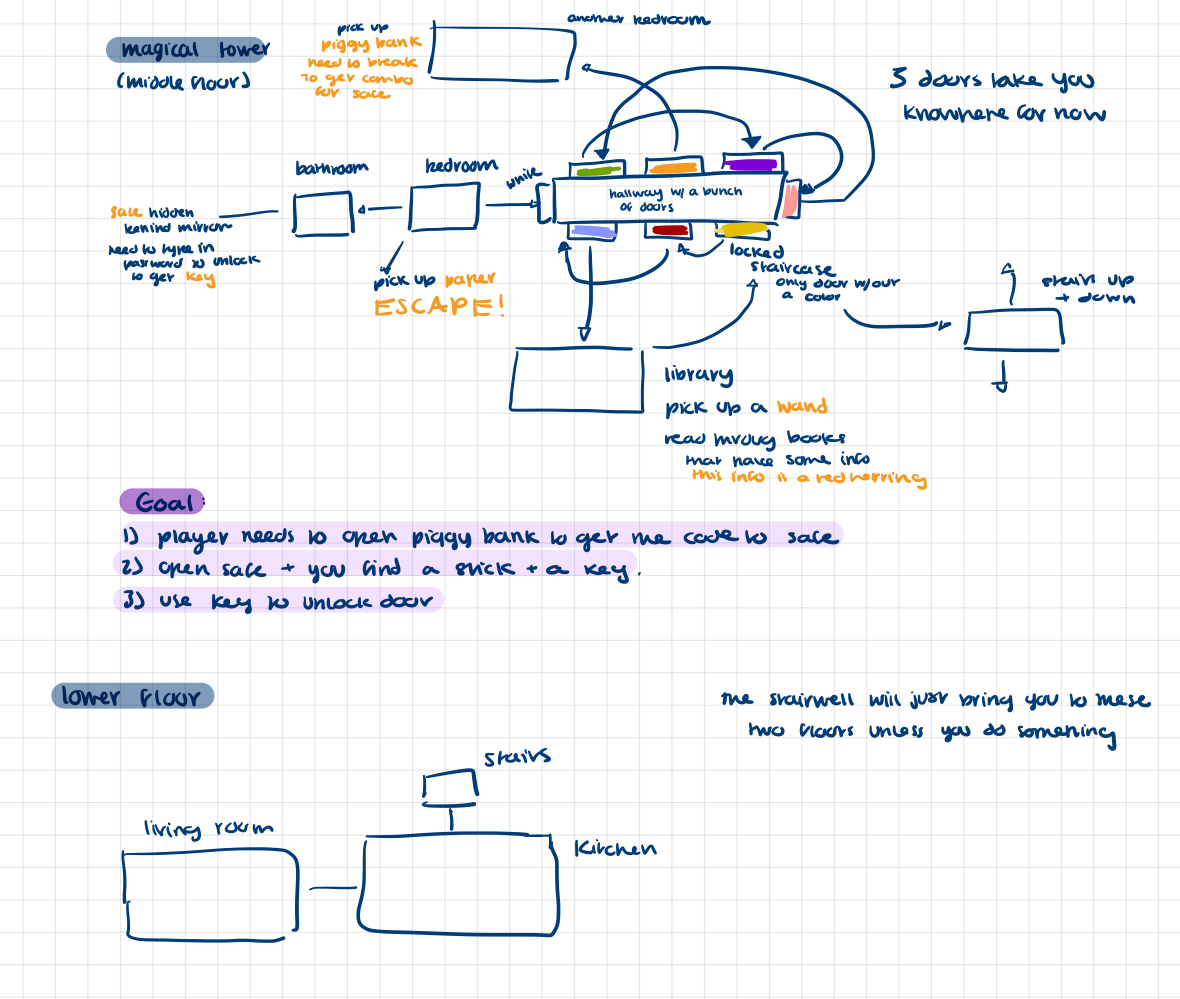 magical tower
(middle floor)
pick up
piggy bank
need to break
to get combo
for safe
another bedroom
5 doors take you
knowhere for now
bathroom
bedroom
white
hallway w/ a bunch
of doors
safe hidden
behind mirror
need to type in
password to unlock
to get key
pick up paper
ESCAPE!
locked
staircase
only door w/our
a color
stairs up
+ down
library
pick up a wand
read throug books
that have some info
this info is a red herring
Goal:
1) player needs to open piggy bank to get the code to safe
2) open safe + you find a stick + a key.
3) use key to unlock door
lower floor
the stairwell will just bring you to these
two floors unless you do something
stairs
living room
kitchen